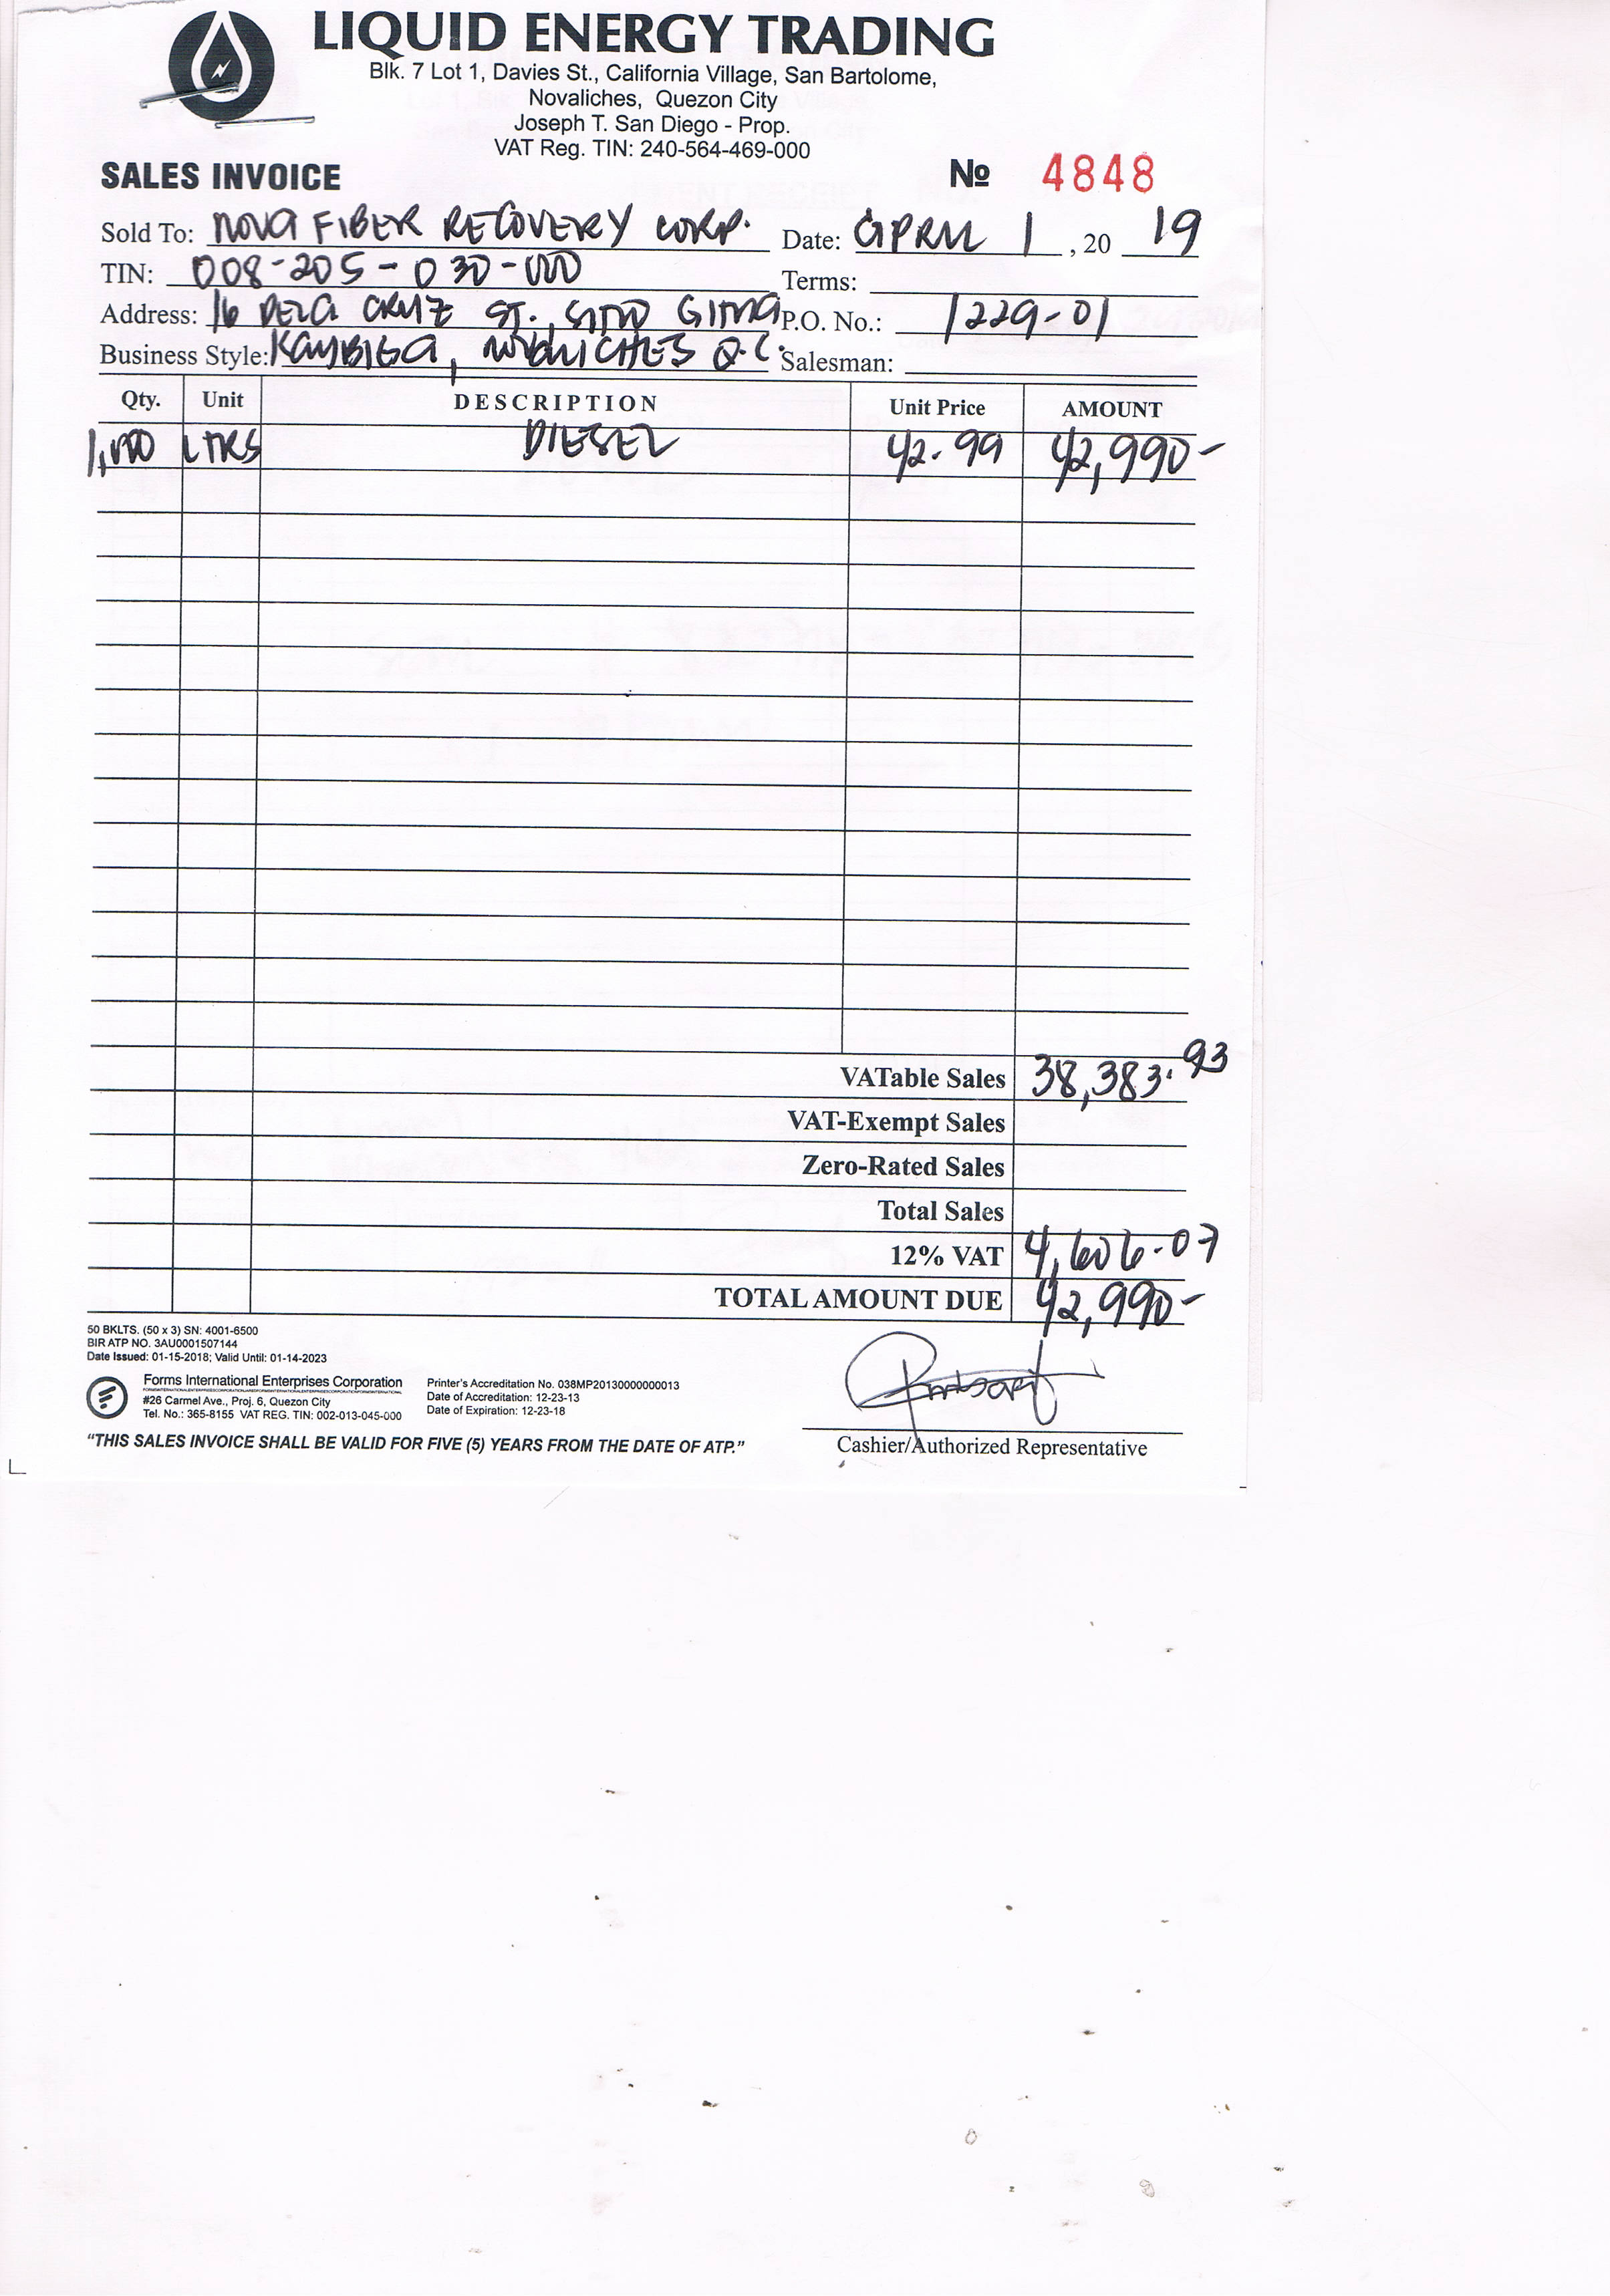 LIQUID ENERGY TRADING
Blk. 7 Lot 1, Davies St., California Village, San Bartolome,
Novaliches, Quezon City
Joseph T. San Diego - Prop.
VAT Reg. TIN: 240-564-469-000
SALES INVOICE № 4848
Sold To: NOVA FIBER RECOVERY CORP. Date: APRIL 1, 20 19
TIN: 008-205-030-000 Terms:
Address: 16 DELA CRUZ ST., SITIO GITNA P.O. No.: 1229-01
Business Style: KAYBIGA, NOVALICHES Q.C. Salesman:
Qty. Unit DESCRIPTION Unit Price AMOUNT
1,000 LTRS DIESEL 42.99 42,990-
VATable Sales 38,383.93
VAT-Exempt Sales
Zero-Rated Sales
Total Sales
12% VAT 4,606-07
TOTAL AMOUNT DUE 42,990-
50 BKLTS. (50 x 3) SN: 4001-6500
BIR ATP NO. 3AU0001507144
Date Issued: 01-15-2018; Valid Until: 01-14-2023
Forms International Enterprises Corporation
#26 Carmel Ave., Proj. 6, Quezon City
Tel. No.: 365-8155 VAT REG. TIN: 002-013-045-000
Printer's Accreditation No. 038MP20130000000013
Date of Accreditation: 12-23-13
Date of Expiration: 12-23-18
"THIS SALES INVOICE SHALL BE VALID FOR FIVE (5) YEARS FROM THE DATE OF ATP."
Cashier/Authorized Representative